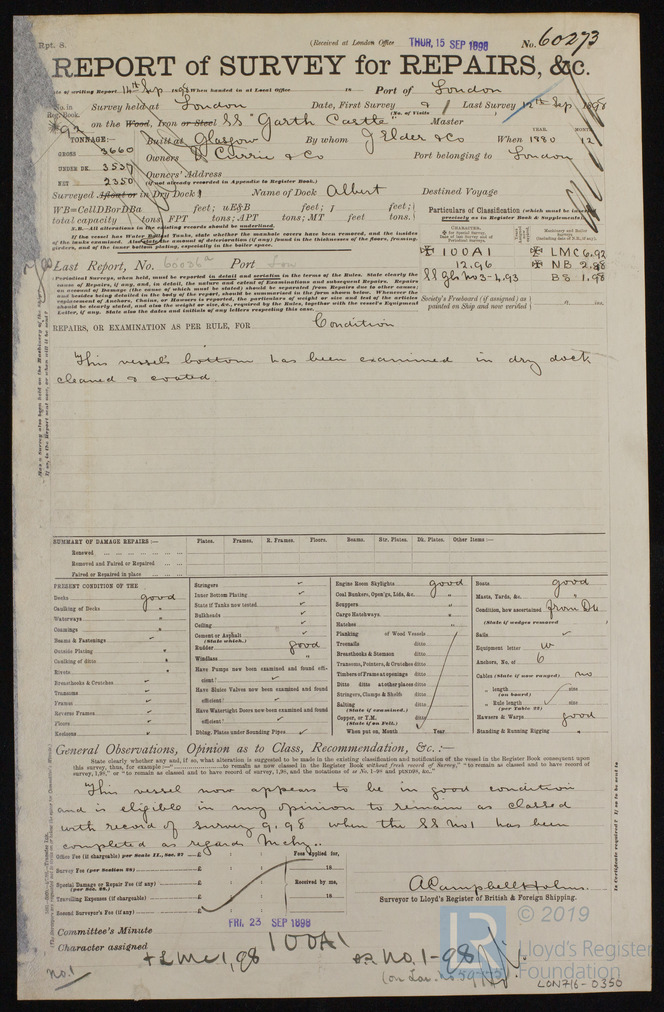 Rpt. 8.
(Received at London Office THUR, 15 SEP 1898 No. 60273
REPORT of SURVEY for REPAIRS, &c.
Date of writing Report 14th Sep 1898 When handed in at Local Office 18 Port of London
No. in Reg. Book. Survey held at London Date, First Survey 9 Last Survey 12th Sep 1898
(No. of Visits
on the Wood, Iron or Steel SS "Garth Castle" Master
TONNAGE:— Built at Glasgow By whom J Elder & Co When 1880 12
YEAR. MONTH
GROSS 3660
Owners D Currie & Co Port belonging to London
UNDER DK. 3537
Owners' Address
NET 2350 (if not already recorded in Appendix to Register Book.)
Surveyed Afloat or in Dry Dock Name of Dock Albert Destined Voyage
WB=CellDBorDBa feet; uE&B feet; f feet;
total capacity tons, FPT tons; APT tons; MT feet tons.
Particulars of Classification (which must be inserted precisely as in Register Book & Supplements)
N.B.—All alterations in the existing records should be underlined.
If the vessel has Water Ballast Tanks, state whether the manhole covers have been removed, and the insides
of the tanks examined. Also state the amount of deterioration (if any) found in the thicknesses of the floors, framing,
girders, and of the inner bottom plating, especially in the boiler space.
✠ 100A1 ✠ LMC 6.92
12.96 ✠ NB 2.88
SS Gls No 3-4.93 BS 1.98
Last Report, No. Port Lon
Periodical Surveys, when held, must be reported in detail and seriatim in the terms of the Rules. State clearly the
cause of Repairs, if any, and, in detail, the nature and extent of Examinations and subsequent Repairs. Repairs
on account of Damage (the cause of which must be stated) should be separated from Repairs due to other causes;
and besides being detailed in the body of the report, should be summarised in the form shown below.
Society's Freeboard (if assigned) as
painted on Ship and now verified
REPAIRS, OR EXAMINATION AS PER RULE, FOR Condition
This vessel's bottom has been examined in dry dock
cleaned & coated
SUMMARY OF DAMAGE REPAIRS :— Plates. Frames. R. Frames. Floors. Beams. Str. Plates. Dk. Plates. Other Items :—
Renewed
Removed and Faired or Repaired
Faired or Repaired in place
PRESENT CONDITION OF THE
Decks good
Caulking of Decks "
Waterways "
Coamings "
Beams & Fastenings
Outside Plating "
Caulking of ditto "
Rivets "
Breasthooks & Crutches
Transoms
Frames
Reverse Frames
Floors
Keelsons
Stringers
Inner Bottom Plating
State if Tanks now tested
Bulkheads
Ceiling
Cement or Asphalt
(State which.)
Rudder good
Windlass "
Have Pumps now been examined and found effi-
cient?
Have Sluice Valves now been examined and found
efficient?
Have Watertight Doors now been examined and found
efficient?
Dblng. Plates under Sounding Pipes
Engine Room Skylights good
Coal Bunkers, Open'gs, Lids, &c. "
Scuppers "
Cargo Hatchways "
Hatches "
Planking of Wood Vessels
Treenails ditto
Breasthooks & Stemson ditto
Transoms, Pointers, & Crutches ditto
Timbers of Frame at openings ditto
Ditto ditto at other places ditto
Stringers, Clamps & Shelfs ditto
Salting ditto
(State if examined.)
Copper, or Y.M.
(State if on Felt.)
When put on, Month Year
Boats good
Masts, Yards, &c. "
Condition, how ascertained from Dk
(State if wedges removed
Sails
Equipment letter W
Anchors, No. of 6
Cables (State if now ranged) no
" length size
(on board)
" Rule length size
(per Table 22)
Hawsers & Warps good
Standing & Running Rigging "
General Observations, Opinion as to Class, Recommendation, &c. :—
State clearly whether any, and if so, what alteration is suggested to be made in the existing classification and notification of the vessel in the Register Book consequent upon
This vessel now appears to be in good condition
and is eligible in my opinion to remain as classed
with record of survey 9,98 when the SS No 1 has been
completed as regards Mchy..
Office Fee (if chargeable) per Scale II., Sec. 27 £ : : Fees applied for,
Survey Fee (per Section 28) £ : : 18
Special Damage or Repair Fee (if any) £ : : Received by me,
(per Sec. 28.)
Travelling Expenses (if chargeable) £ : : 18
Second Surveyor's Fee (if any) £ : :
A Campbell Holms.
Surveyor to Lloyd's Register of British & Foreign Shipping.
Committee's Minute FRI, 23 SEP 1898
Character assigned 100A1
+ LMC 1,98 No. 1-98
No. 1
LR © 2019
Lloyd's Register
Foundation
LON716-0350